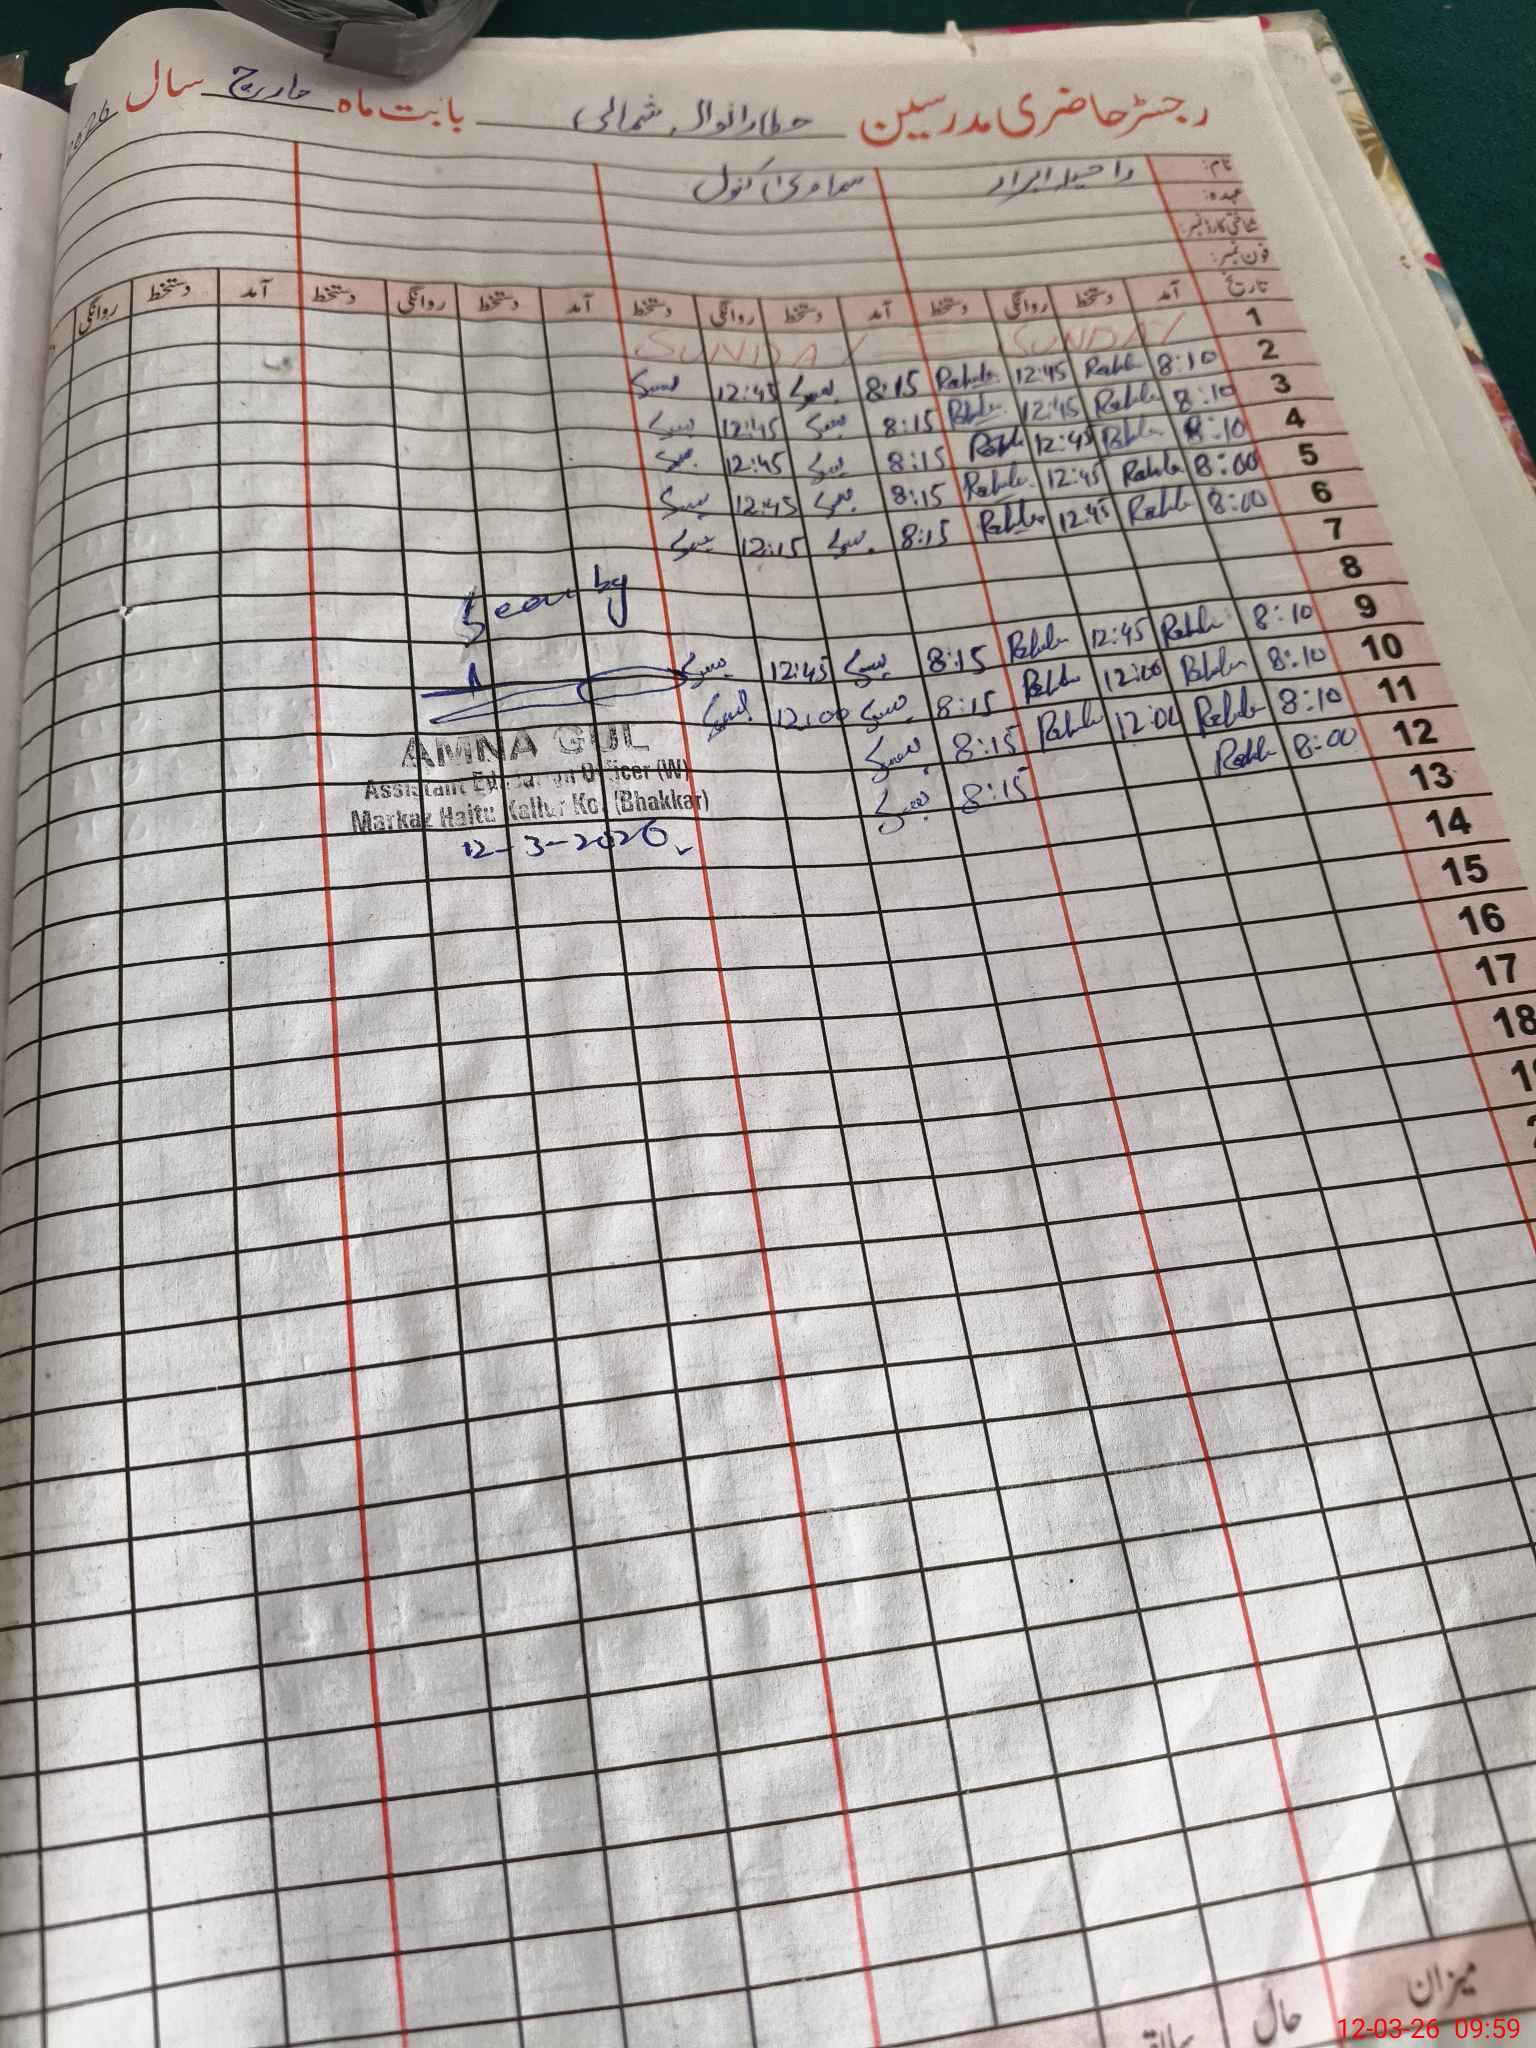 رجسٹر حاضری مدرسین شمالی بابت ماہ مارچ سال 2026
نام:
عہدہ:
شناختی کارڈ نمبر:
فون نمبر:
تاریخ آمد دستخط روانگی دستخط آمد دستخط روانگی دستخط آمد دستخط روانگی دستخط آمد دستخط روانگی
1 SUNDAY SUNDAY
2 8:10 Rahila 12:45 Rahila 8:15 12:45
3 8:10 Rahila 12:45 Rahila 8:15 12:45
4 8:10 Rahila 12:45 Rahila 8:15 12:45
5 8:00 Rahila 12:45 Rahila 8:15 12:45
6 8:00 Rahila 12:45 Rahila 8:15 12:15
7
8
9 8:10 Rahila 12:45 Rahila 8:15 12:45
10 8:10 Rahila 12:00 Rahila 8:15 12:00
11 8:10 Rahila 12:00 Rahila 8:15
12 8:00 Rahila 8:15
13
14
15
16
17
18
Seen by
AMNA GUL
Assistant Education Officer (W)
Markaz Haitu Kallur Kot (Bhakkar)
12-3-2026
میزان
حال
12-03-26 09:59